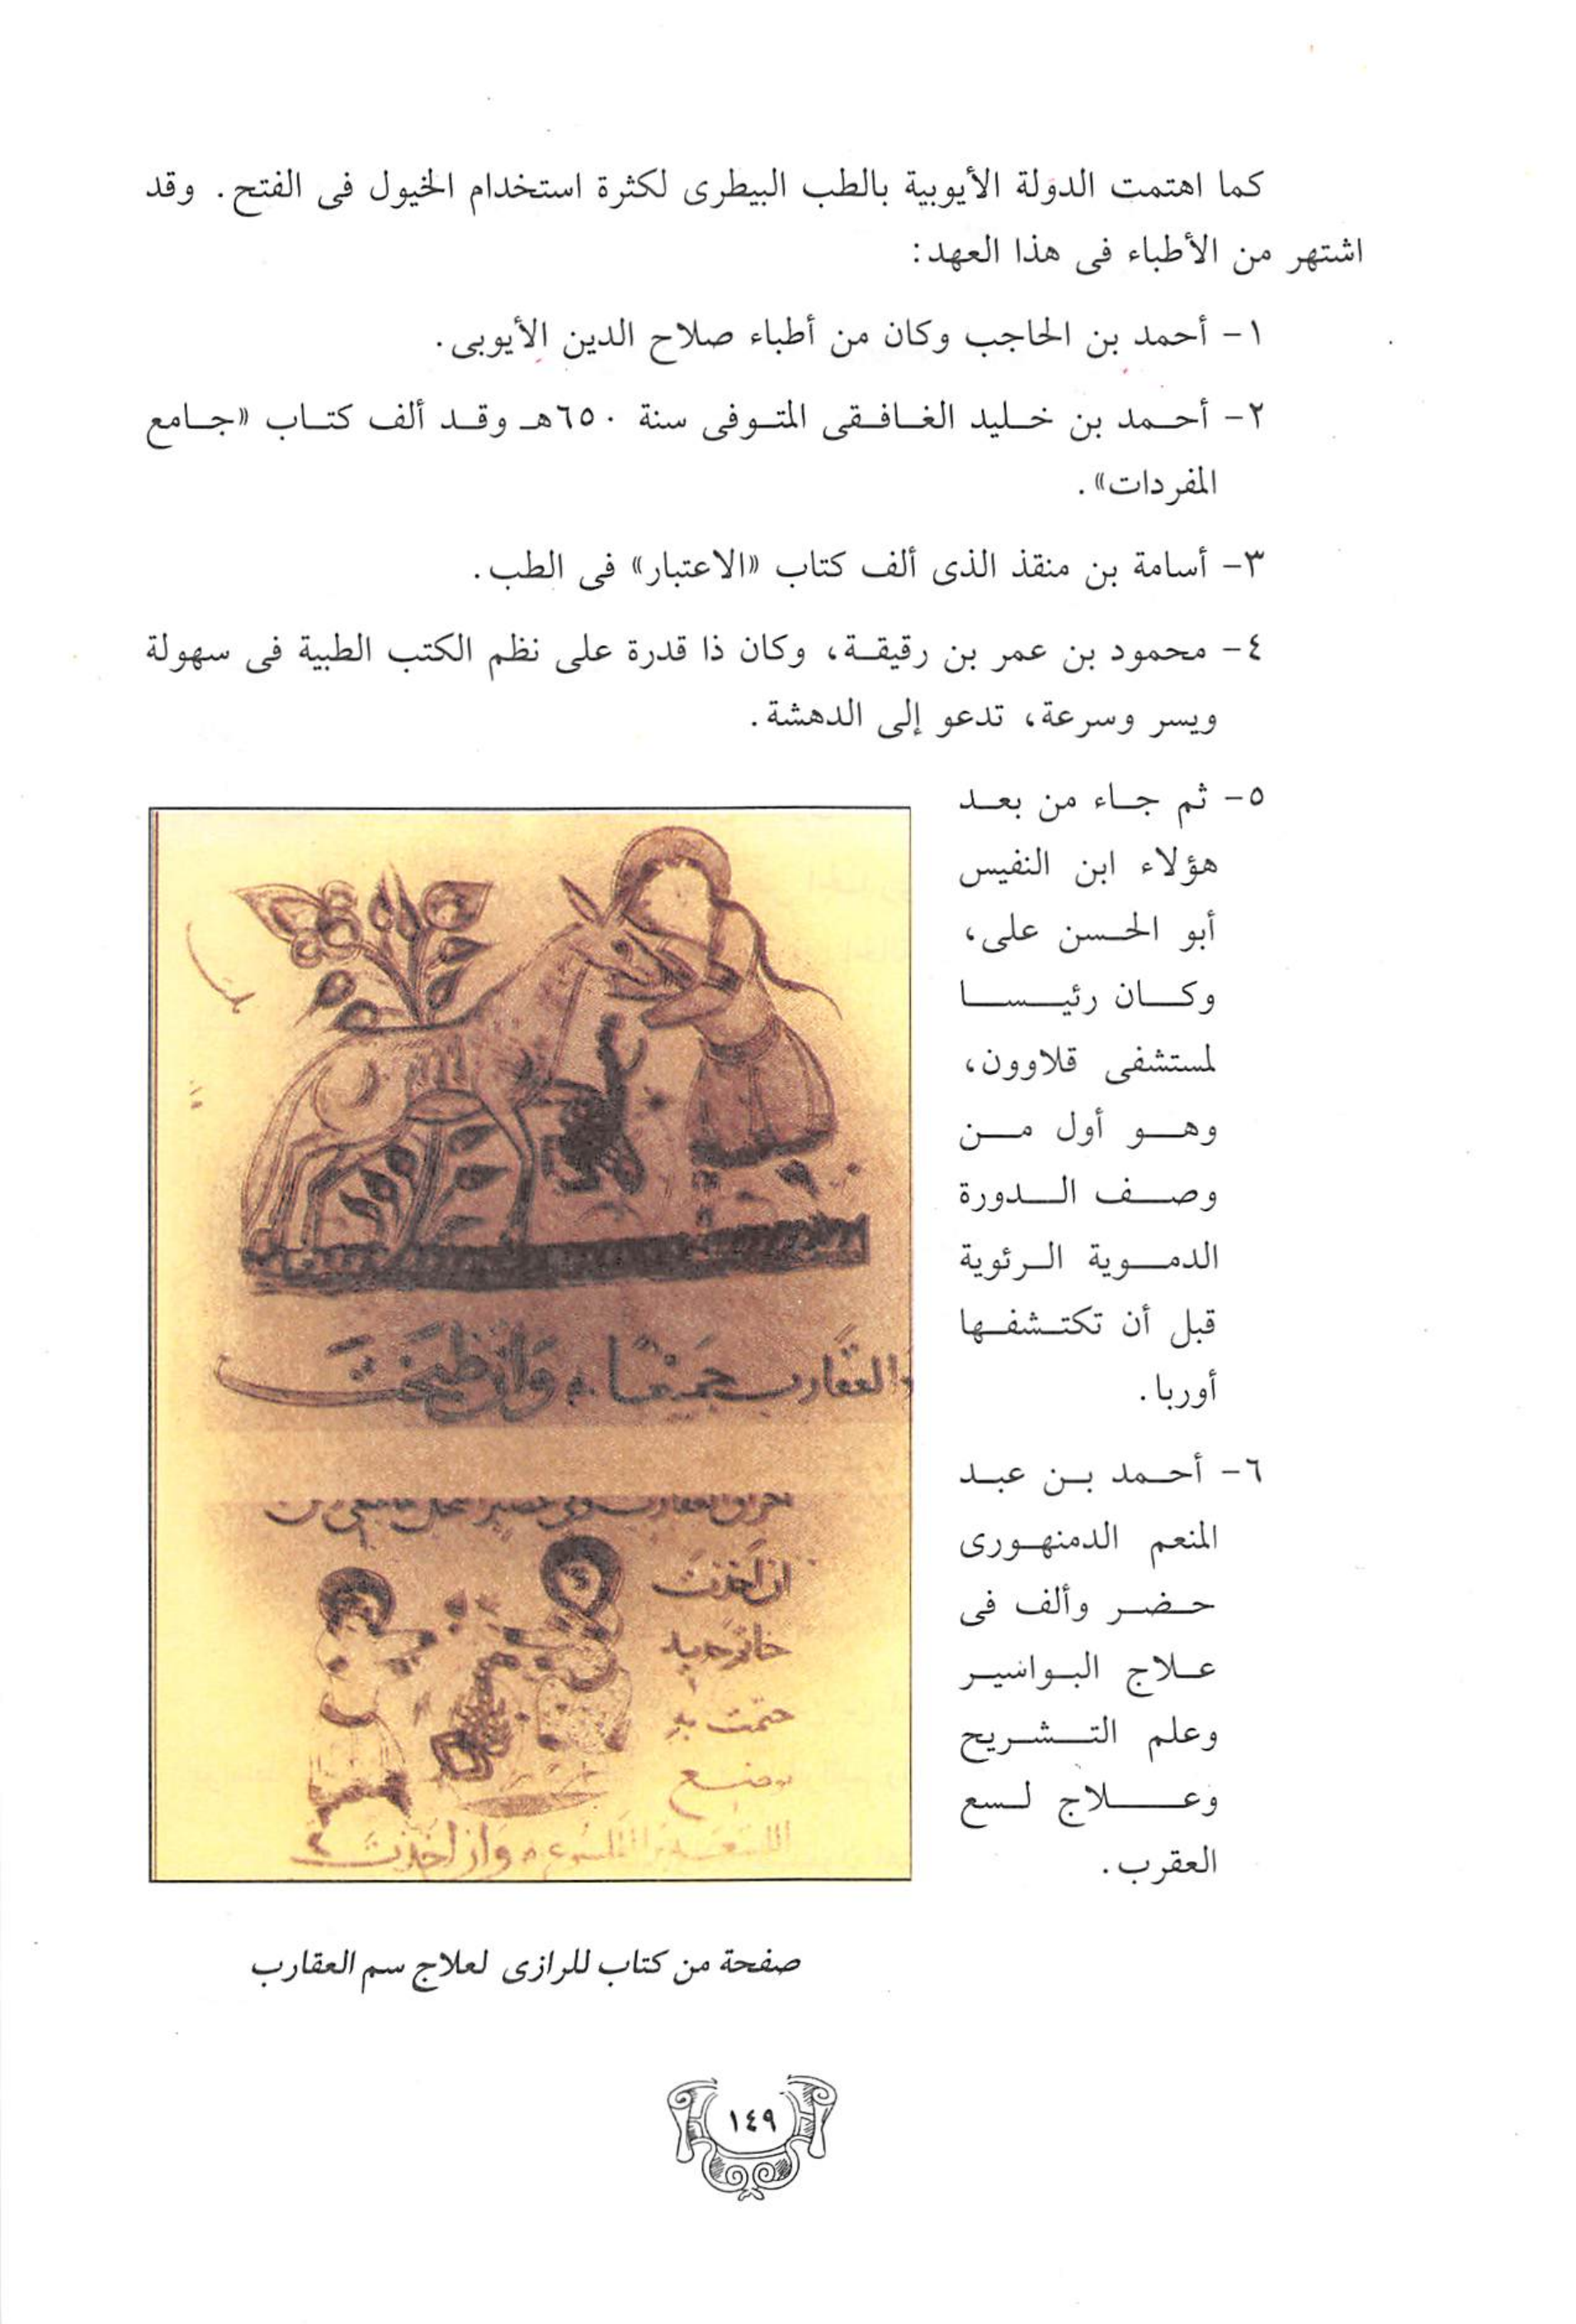 كما اهتمت الدولة الأيوبية بالطب البيطرى لكثرة استخدام الخيول فى الفتح. وقد
اشتهر من الأطباء فى هذا العهد:
١- أحمد بن الحاجب وكان من أطباء صلاح الدين الأيوبى.
٢- أحمد بن خليد الغافقى المتوفى سنة ٦٥٠هـ وقد ألف كتاب «جامع
المفردات».
٣- أسامة بن منقذ الذى ألف كتاب «الاعتبار» فى الطب.
٤- محمود بن عمر بن رقيقة، وكان ذا قدرة على نظم الكتب الطبية فى سهولة
ويسر وسرعة، تدعو إلى الدهشة.
٥- ثم جاء من بعد
هؤلاء ابن النفيس
أبو الحسن على،
وكان رئيسا
لمستشفى قلاوون،
وهو أول من
وصف الدورة
الدموية الرئوية
قبل أن تكتشفها
أوربا.
٦- أحمد بن عبد
المنعم الدمنهورى
حضر وألف فى
علاج البواسير
وعلم التشريح
وعلاج لسع
العقرب.
والعقارب جميعًا وان طبخت
ان اخذت
خاتم حديد
ختمت به
موضع
اللسعة الملسوع وان اخذت
صفحة من كتاب للرازى لعلاج سم العقارب
١٤٩